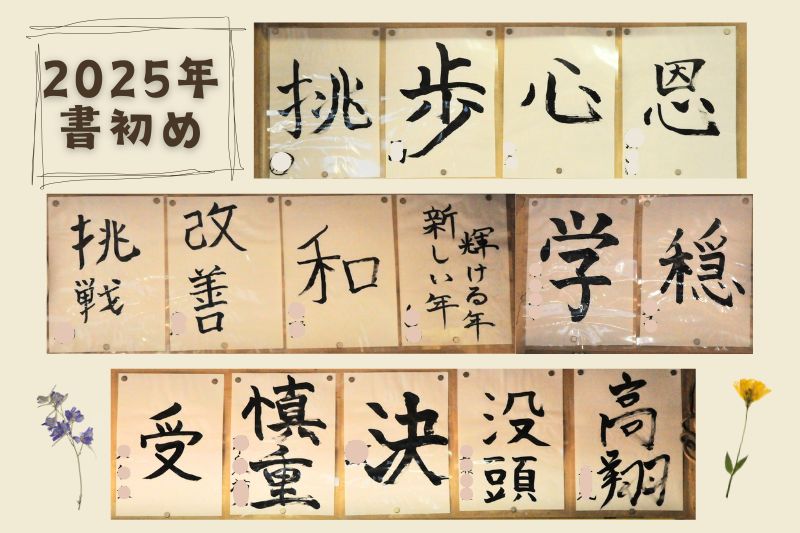 2025年
書初め
挑
歩
心
恩
挑戦
改善
和
輝ける年
新しい年
学
穏
受
慎重
決
没頭
高翔